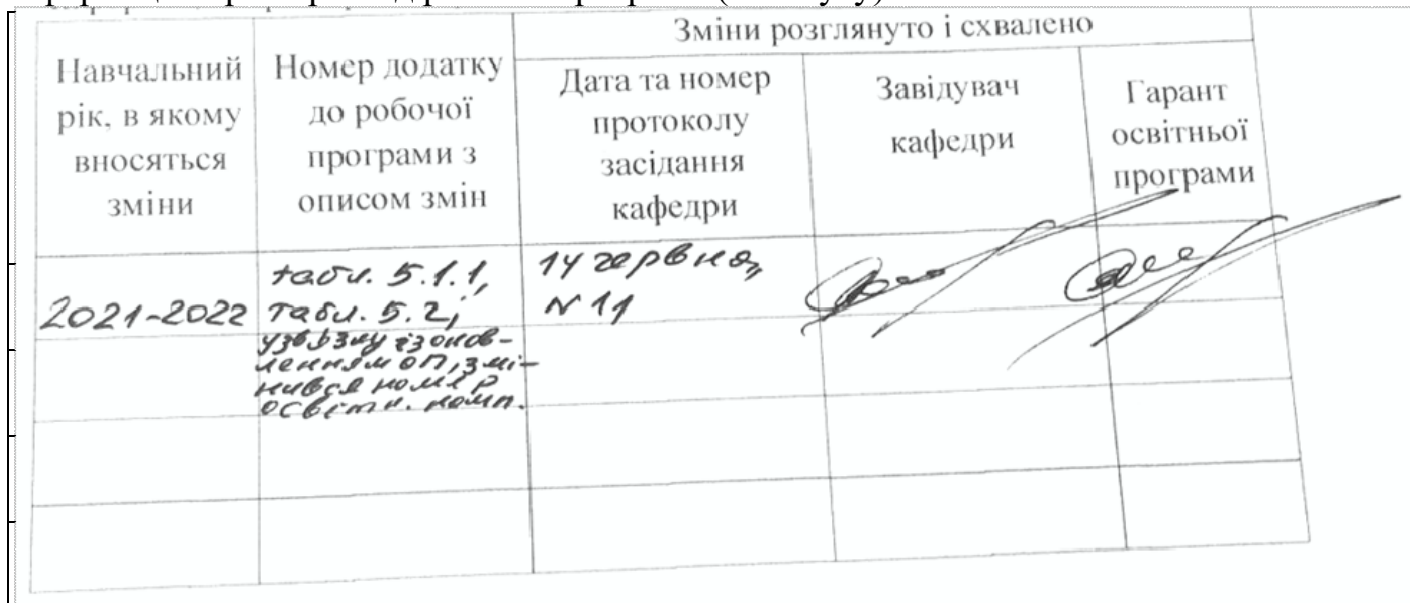 Зміни розглянуто і схвалено
Навчальний
рік, в якому
вносяться
зміни
Номер додатку
до робочої
програми з
описом змін
Дата та номер
протоколу
засідання
кафедри
Завідувач
кафедри
Гарант
освітньої
програми
2021-2022
табл. 5.1.1,
табл. 5.2,
у зв'язку із онов-
ленням ОП, змі-
нився номер
освітн. комп.
14 червня,
N 11